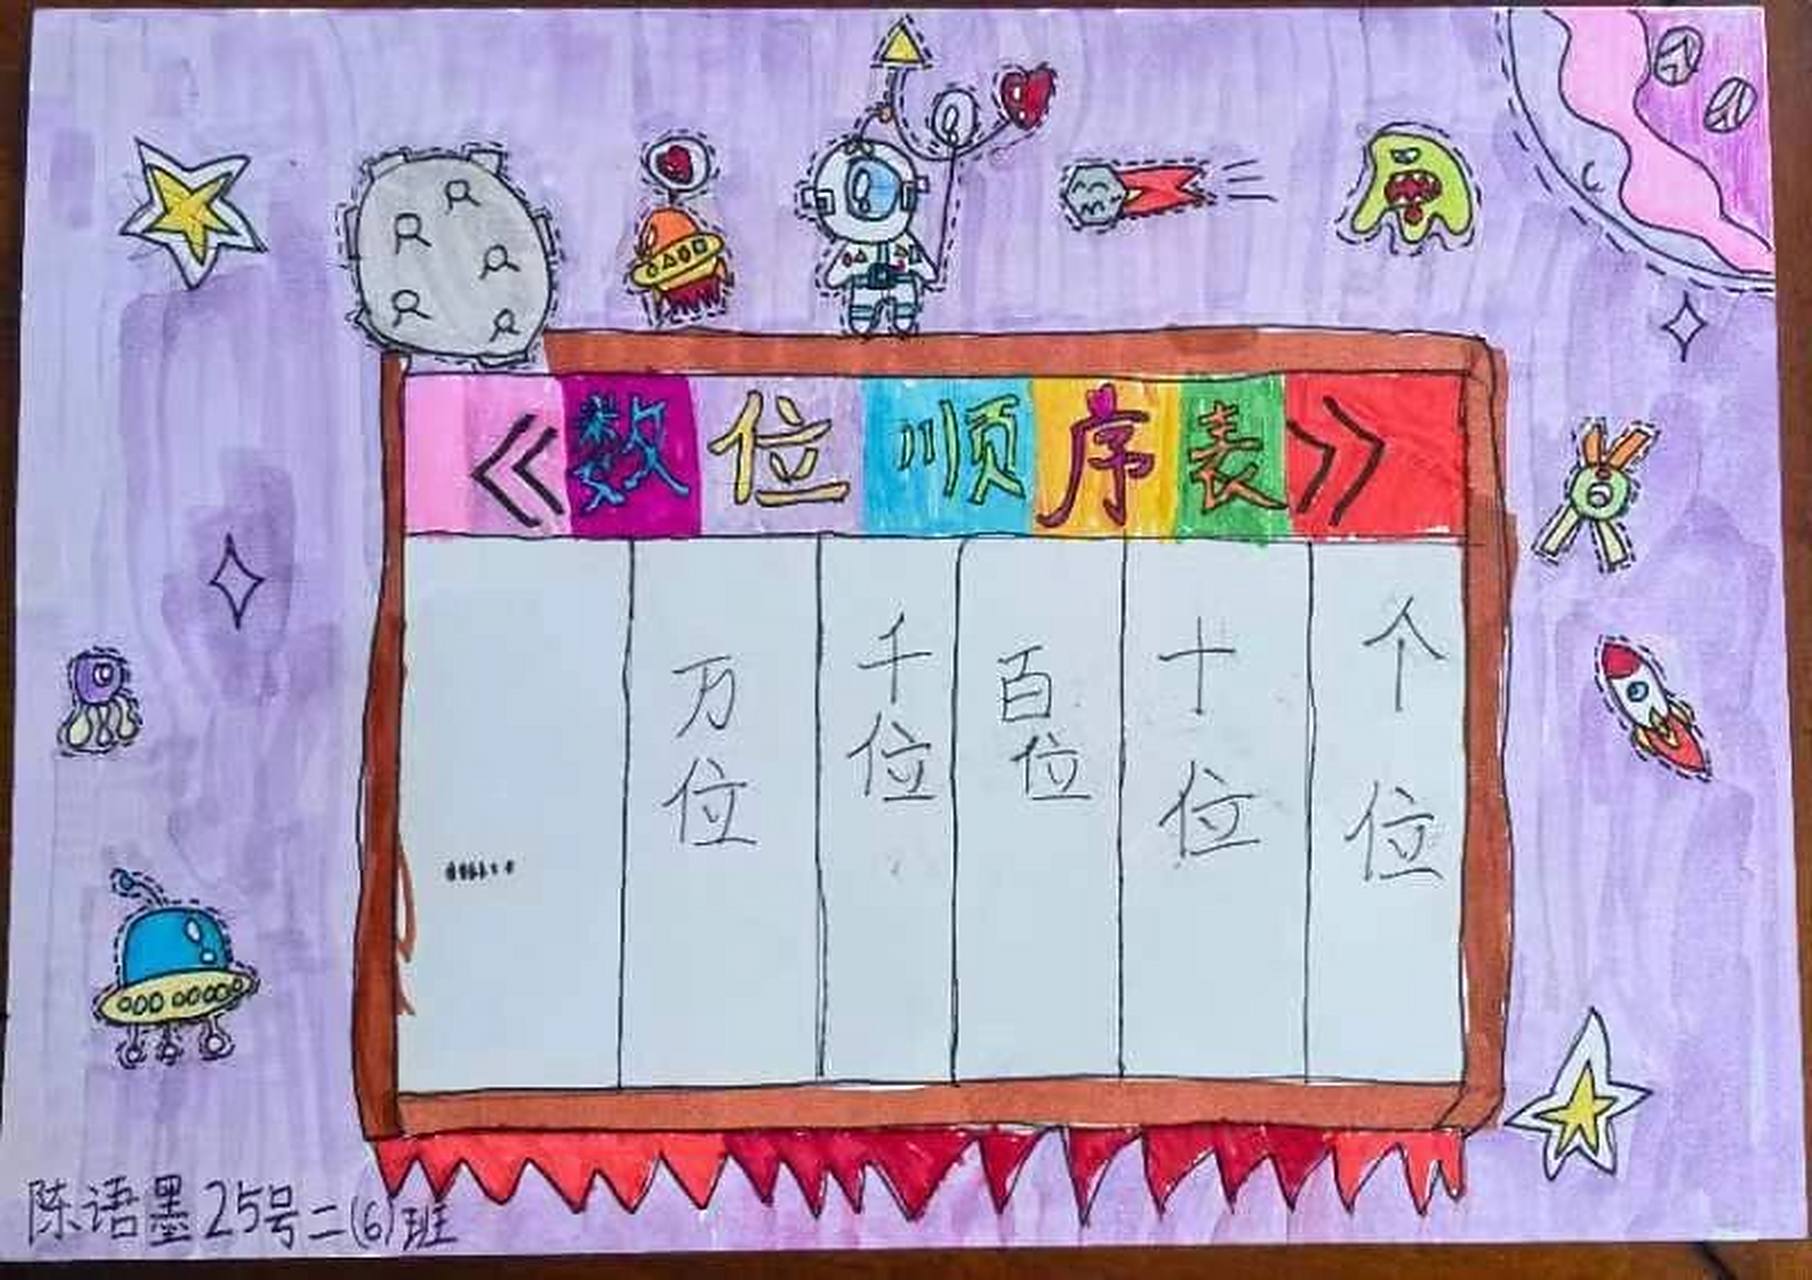 《数位顺序表》
…… 万位 千位 百位 十位 个位
陈语墨25号二(6)班